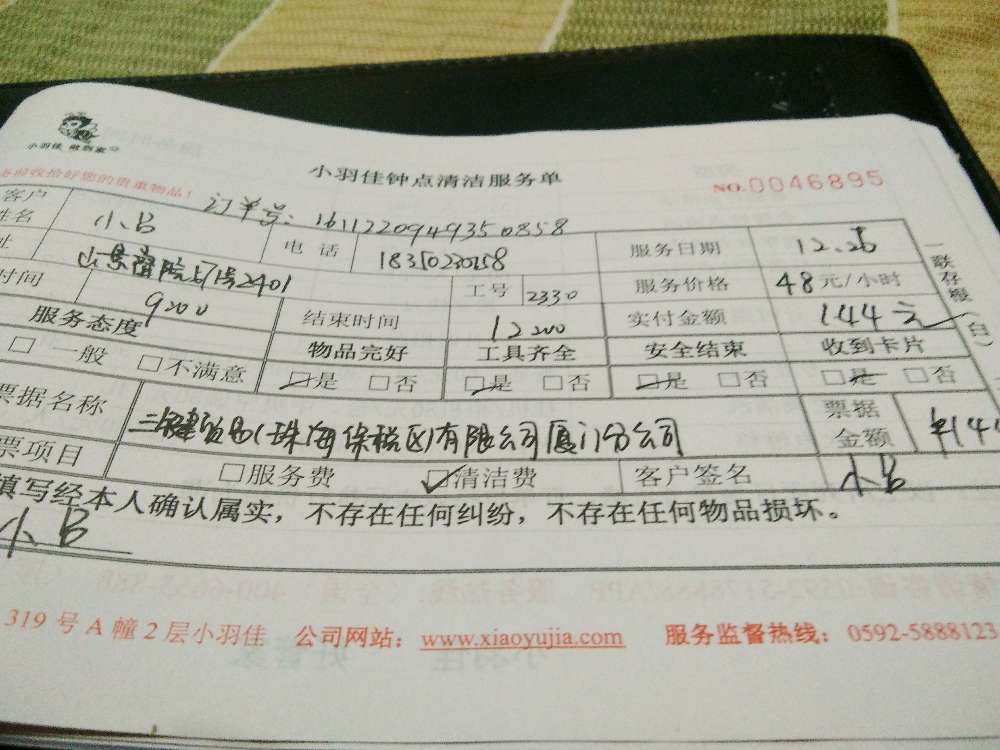 小羽佳 做到家
小羽佳钟点清洁服务单
收拾好您的贵重物品！
NO.0046895
订单号：1611220949350858
客户
姓名 小B 电话 18350230258 服务日期 12.26
址 2401 工号 2330 服务价格 48元/小时
时间 9:00 结束时间 12:00 实付金额 144元
服务态度 物品完好 工具齐全 安全结束 收到卡片
□一般 □不满意 ☑是 □否 ☑是 □否 ☑是 □否 ☑是 □否
票据名称 三键贸易(珠海保税区)有限公司厦门分公司 票据金额 ¥144
票项目 □服务费 ☑清洁费 客户签名 小B
填写经本人确认属实，不存在任何纠纷，不存在任何物品损坏。
小B
一联存根（白）
319号A幢2层小羽佳 公司网站：www.xiaoyujia.com 服务监督热线：0592-5888123